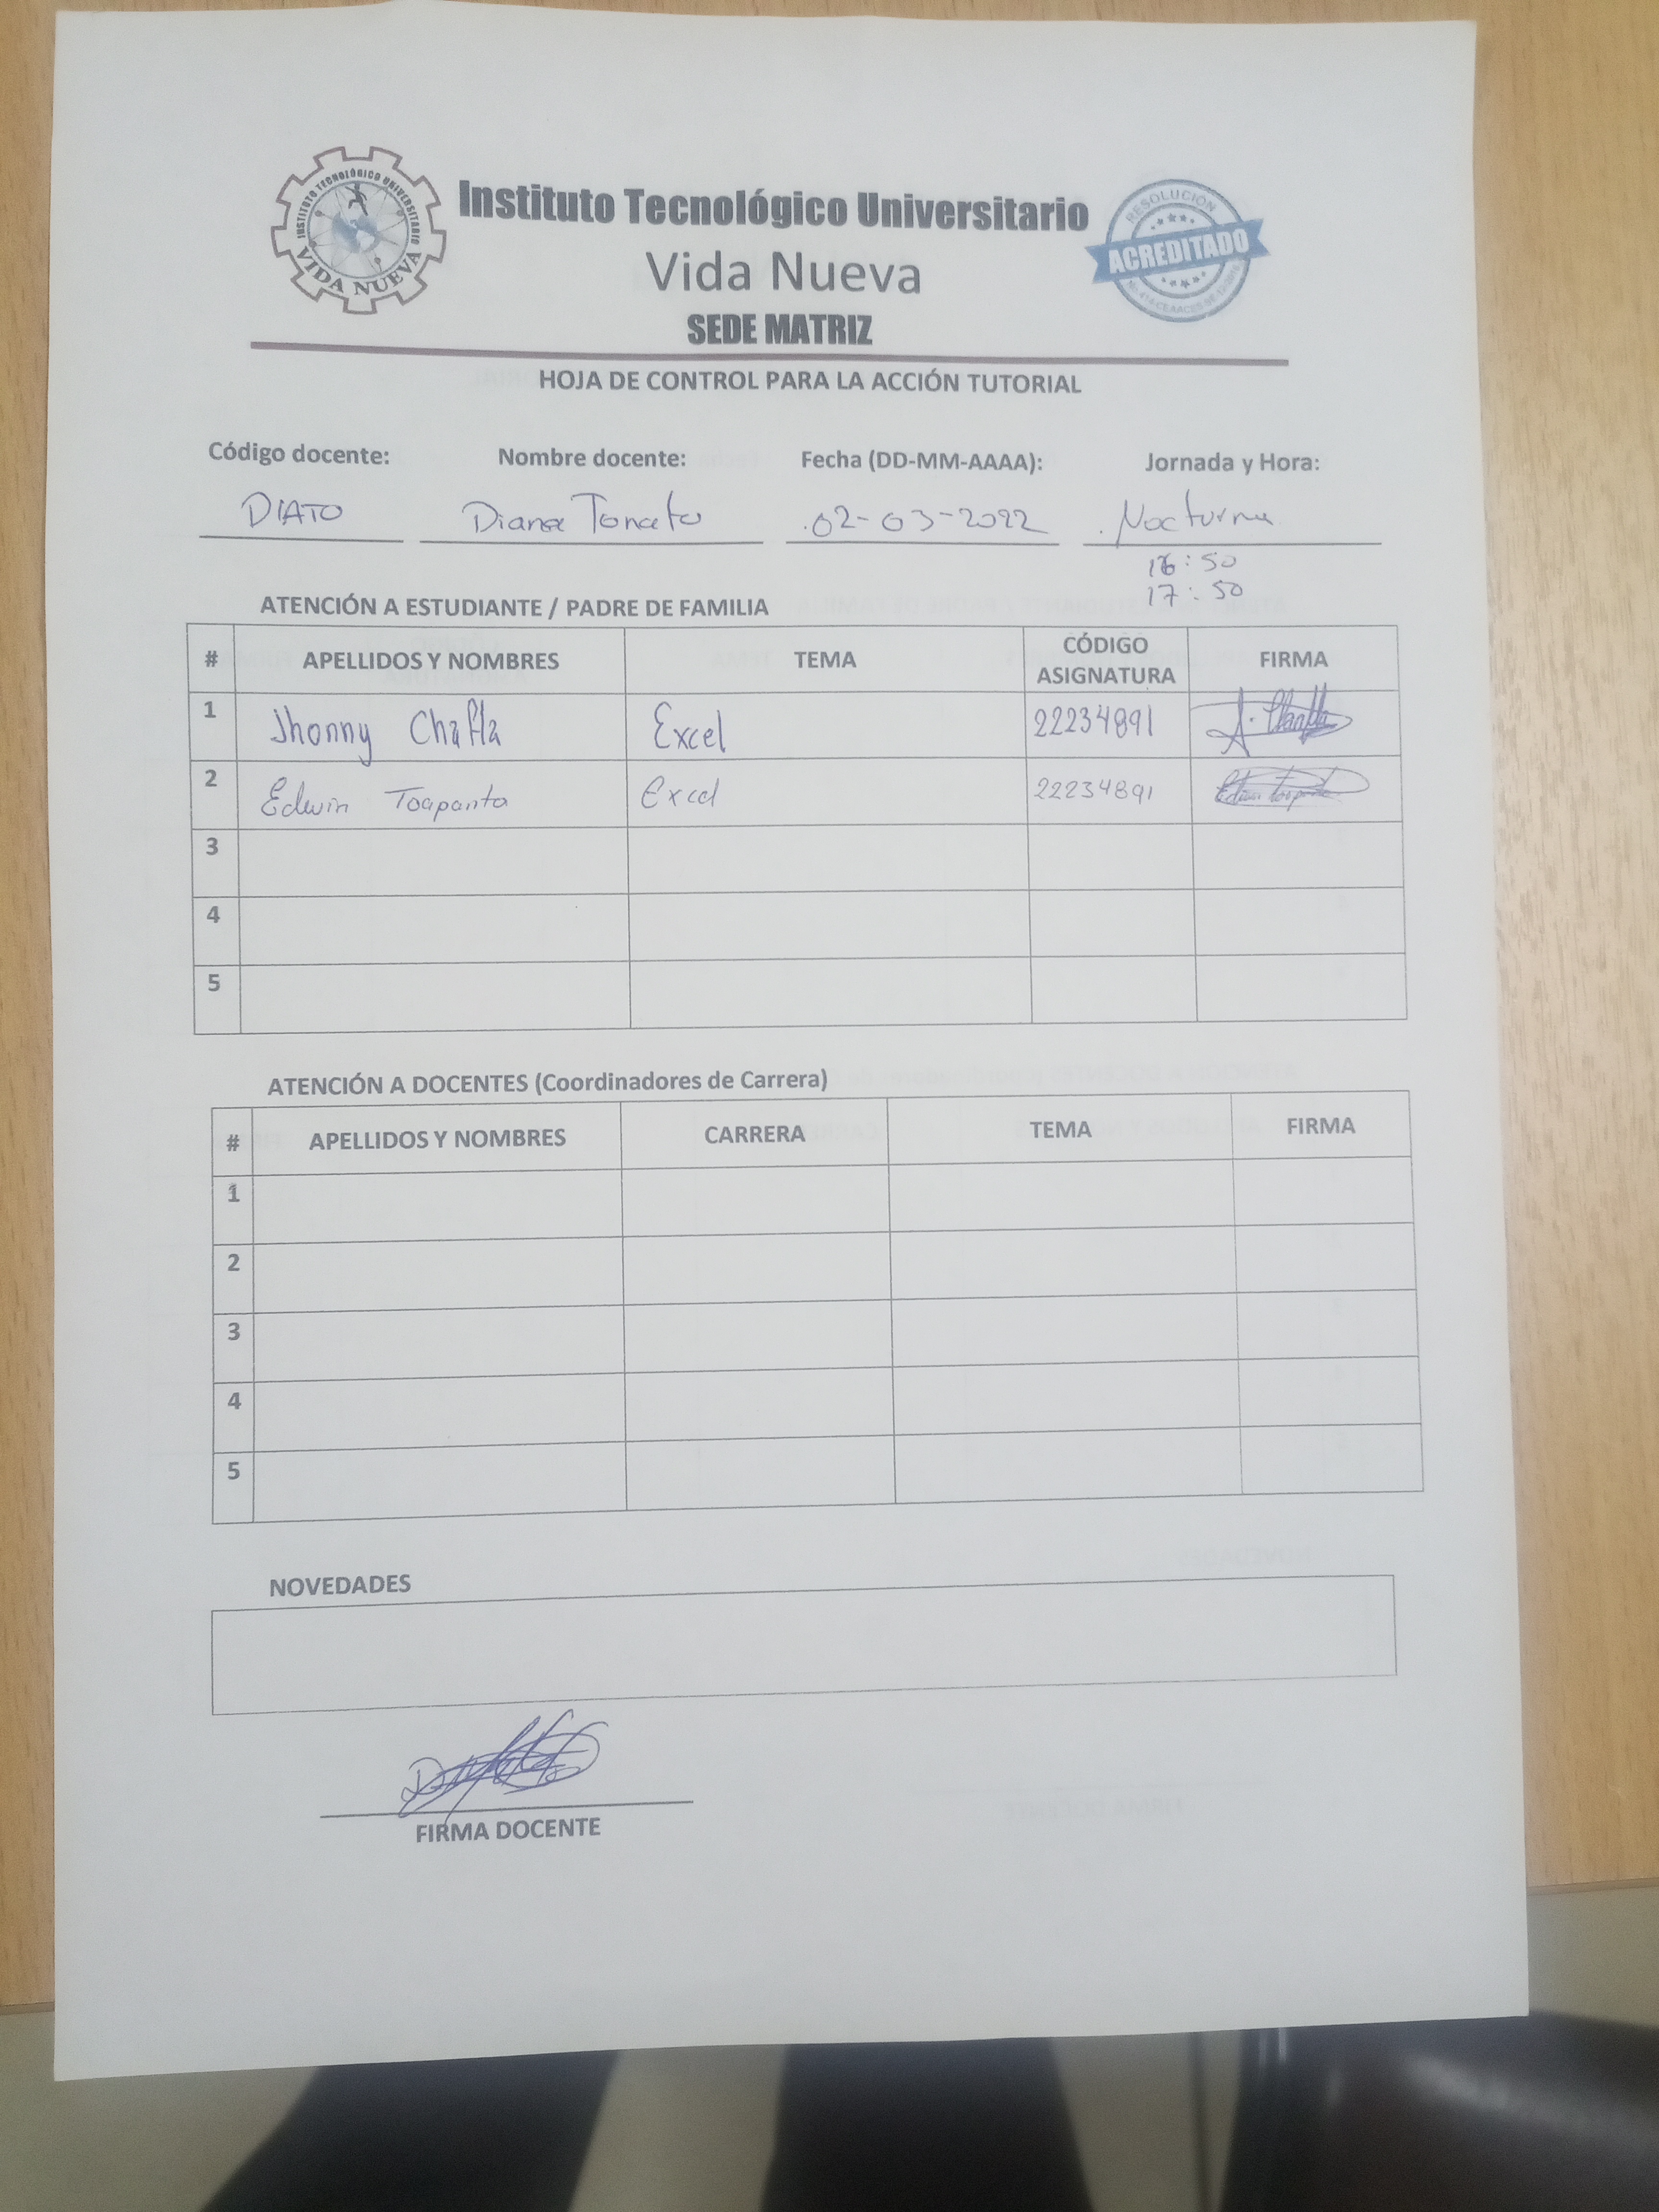 INSTITUTO TECNOLÓGICO UNIVERSITARIO
VIDA NUEVA
Instituto Tecnológico Universitario
Vida Nueva
SEDE MATRIZ
RESOLUCIÓN
ACREDITADO
HOJA DE CONTROL PARA LA ACCIÓN TUTORIAL
Código docente: Nombre docente: Fecha (DD-MM-AAAA): Jornada y Hora:
DIATO Diana Tonato 02-03-2022 Nocturna
16:50
17:50
ATENCIÓN A ESTUDIANTE / PADRE DE FAMILIA
# APELLIDOS Y NOMBRES TEMA CÓDIGO ASIGNATURA FIRMA
1 Jhonny Chafla Excel 22234891
2 Edwin Toapanta Excel 22234891
3
4
5
ATENCIÓN A DOCENTES (Coordinadores de Carrera)
# APELLIDOS Y NOMBRES CARRERA TEMA FIRMA
1
2
3
4
5
NOVEDADES
FIRMA DOCENTE